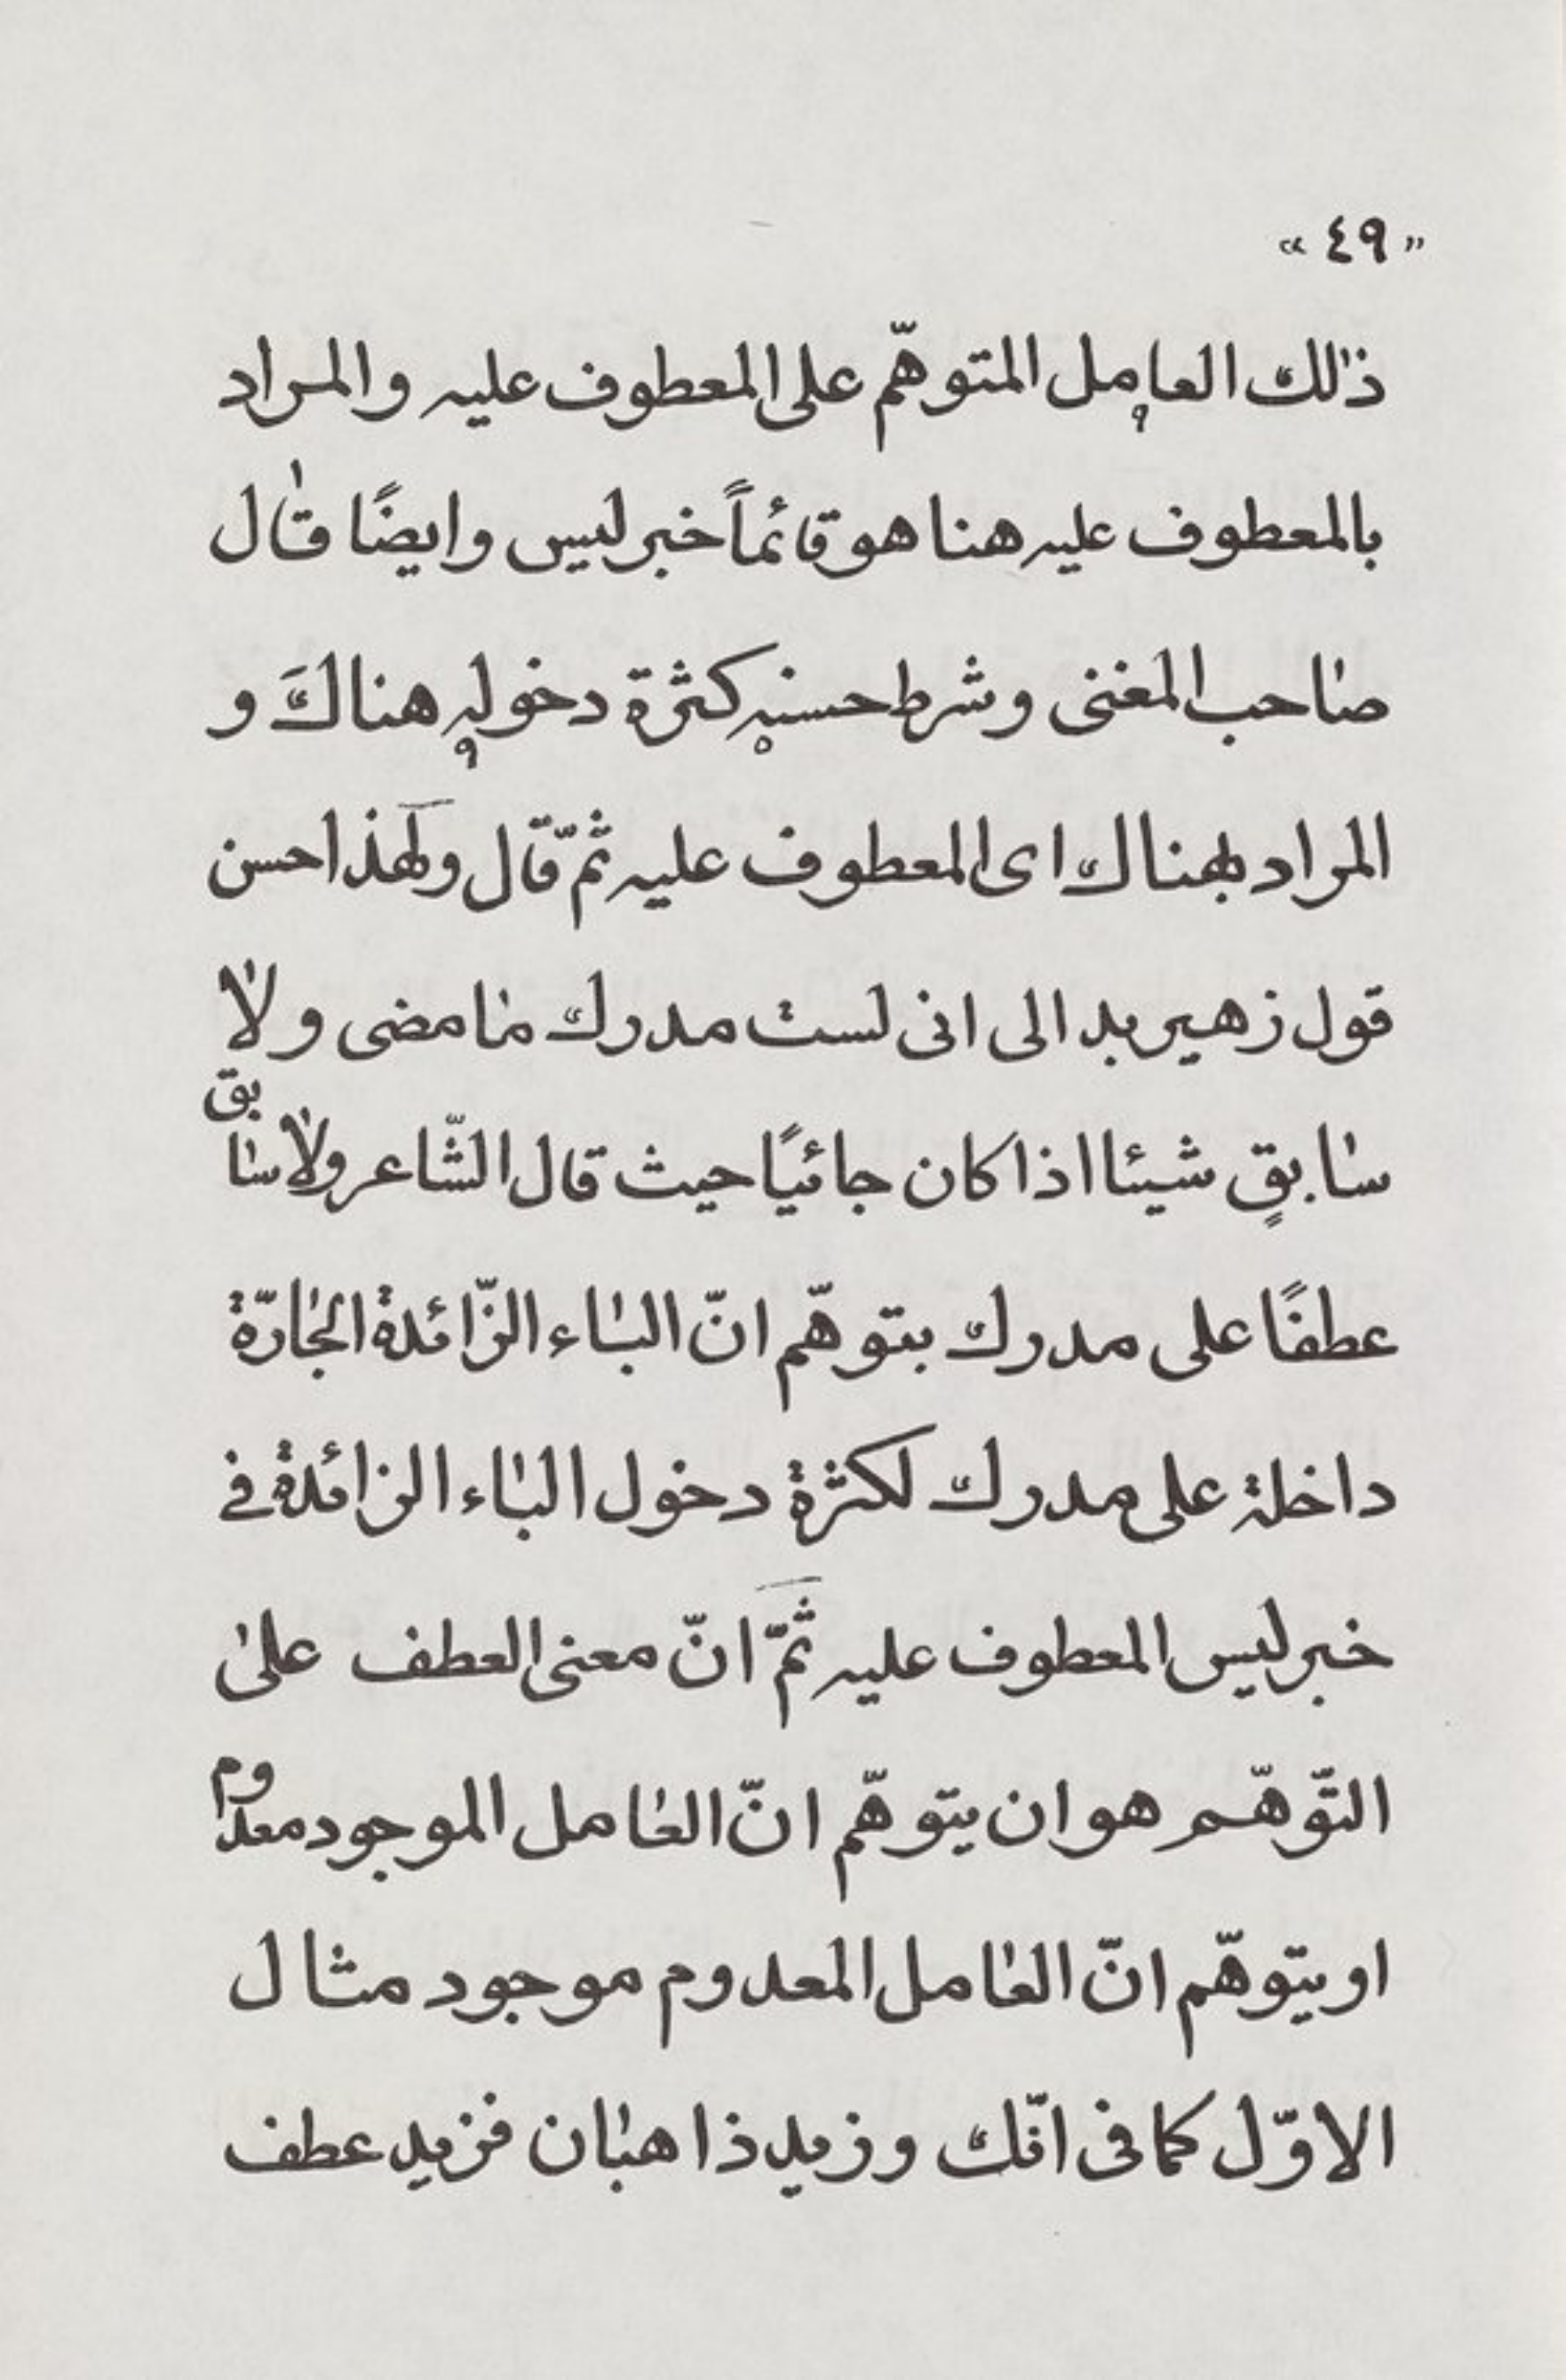 «٤٩»
ذٰلك العامل المتوهّم على المعطوف عليه والمراد
بالمعطوف عليه هنا هو قائماً خبر ليس وايضًا قٰال
صٰاحب المغنى وشرط حسنه كثرة دخوله هناكَ و
المراد بهناك اى المعطوف عليه ثمّ قال ولهذا حسن
قول زهير بد الى انى لست مدرك مٰا مضى ولٰا
سٰابقٍ شيئا اذا كان جائيًا حيث قال الشّاعر ولٰا سٰابق
عطفًا على مدرك بتوهّم انّ البٰاء الزّائدة الجٰارّة
داخلة على مدرك لكثرة دخول البٰاء الزائدة فى
خبر ليس المعطوف عليه ثمّ انّ معنى العطف علىٰ
التّوهّم هو ان يتوهّم انّ العٰامل الموجود معدوم
او يتوهّم انّ العٰامل المعدوم موجود مثال
الاوّل كما فى انّك وزيد ذاهبٰان فزيد عطف